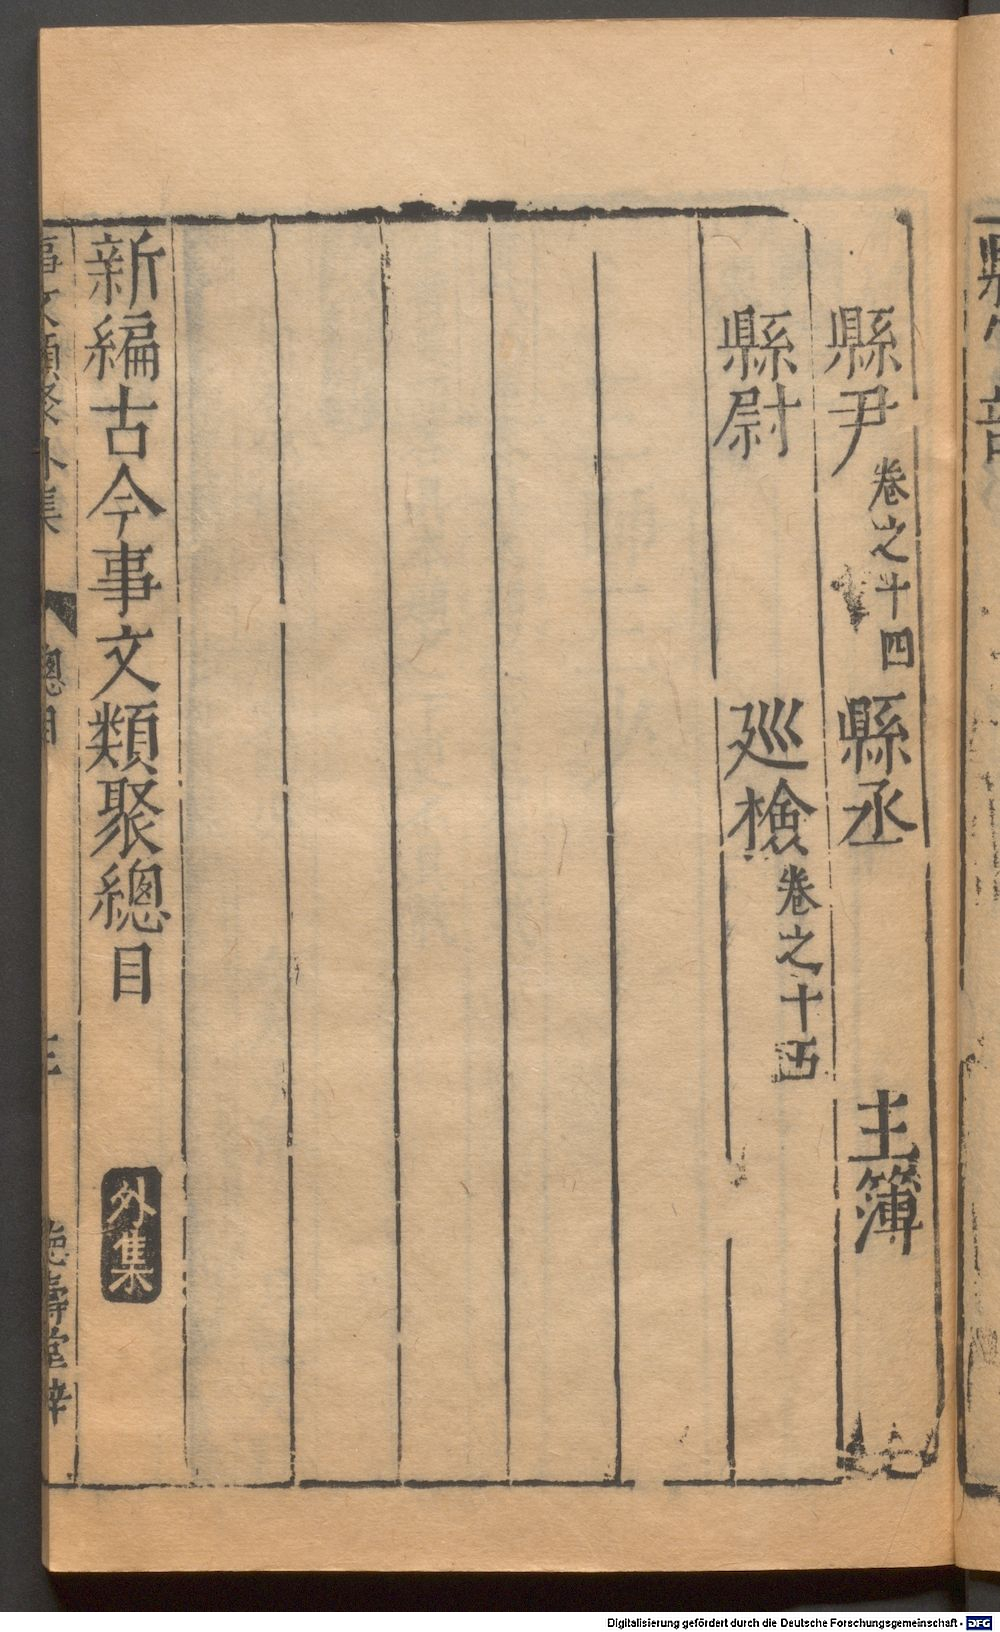 縣尹 卷之十四 縣丞 主簿
縣尉 廵檢 卷之十五
新編古今事文類聚總目 外集
事文類聚外集 總目 三 德壽堂梓
Digitalisierung gefördert durch die Deutsche Forschungsgemeinschaft - DFG